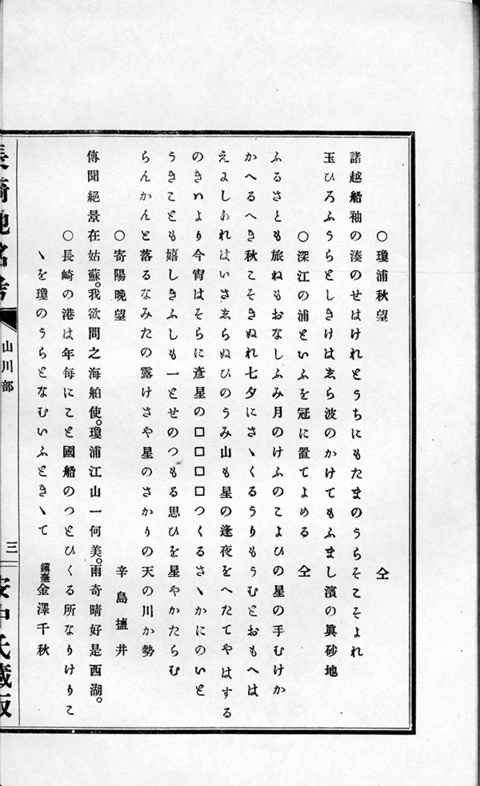 ○瓊浦秋望　仝
諸越船袖の湊のせはけれとうちにもたまのうらそこそよれ
玉ひろふうらとしきけはゑら波のかけてもふまし濱の眞砂地
○深江の浦といふを冠に置てよめる　仝
ふるさとも旅ねもおなしふみ月のけふのこよひの星の手むけか
かへるへき秋こそきぬれ七夕にさゝくるうりもうむとおもへは
えにしあれはいさゑらぬひのうみ山も星の逢夜をへたてやはする
のきはより今宵はそらに彥星の□□□□つくるさゝかにのいと
うきことも嬉しきふしも一とせのつもる思ひを星やかたらむ
らんかんと落るなみたの露けさや星のさかりの天の川か勢
○寄陽晩望　辛島塩井
傳聞絕景在姑蘇。我欲問之海舶使。瓊浦江山一何美。雨奇晴好是西湖。
○長崎の港は年每にこと國船のつとひくる所なりけりこ
ゝを瓊のうらとなむいふときゝて　鎭臺金澤千秋
長崎地名考
山川部
三
安中氏藏版